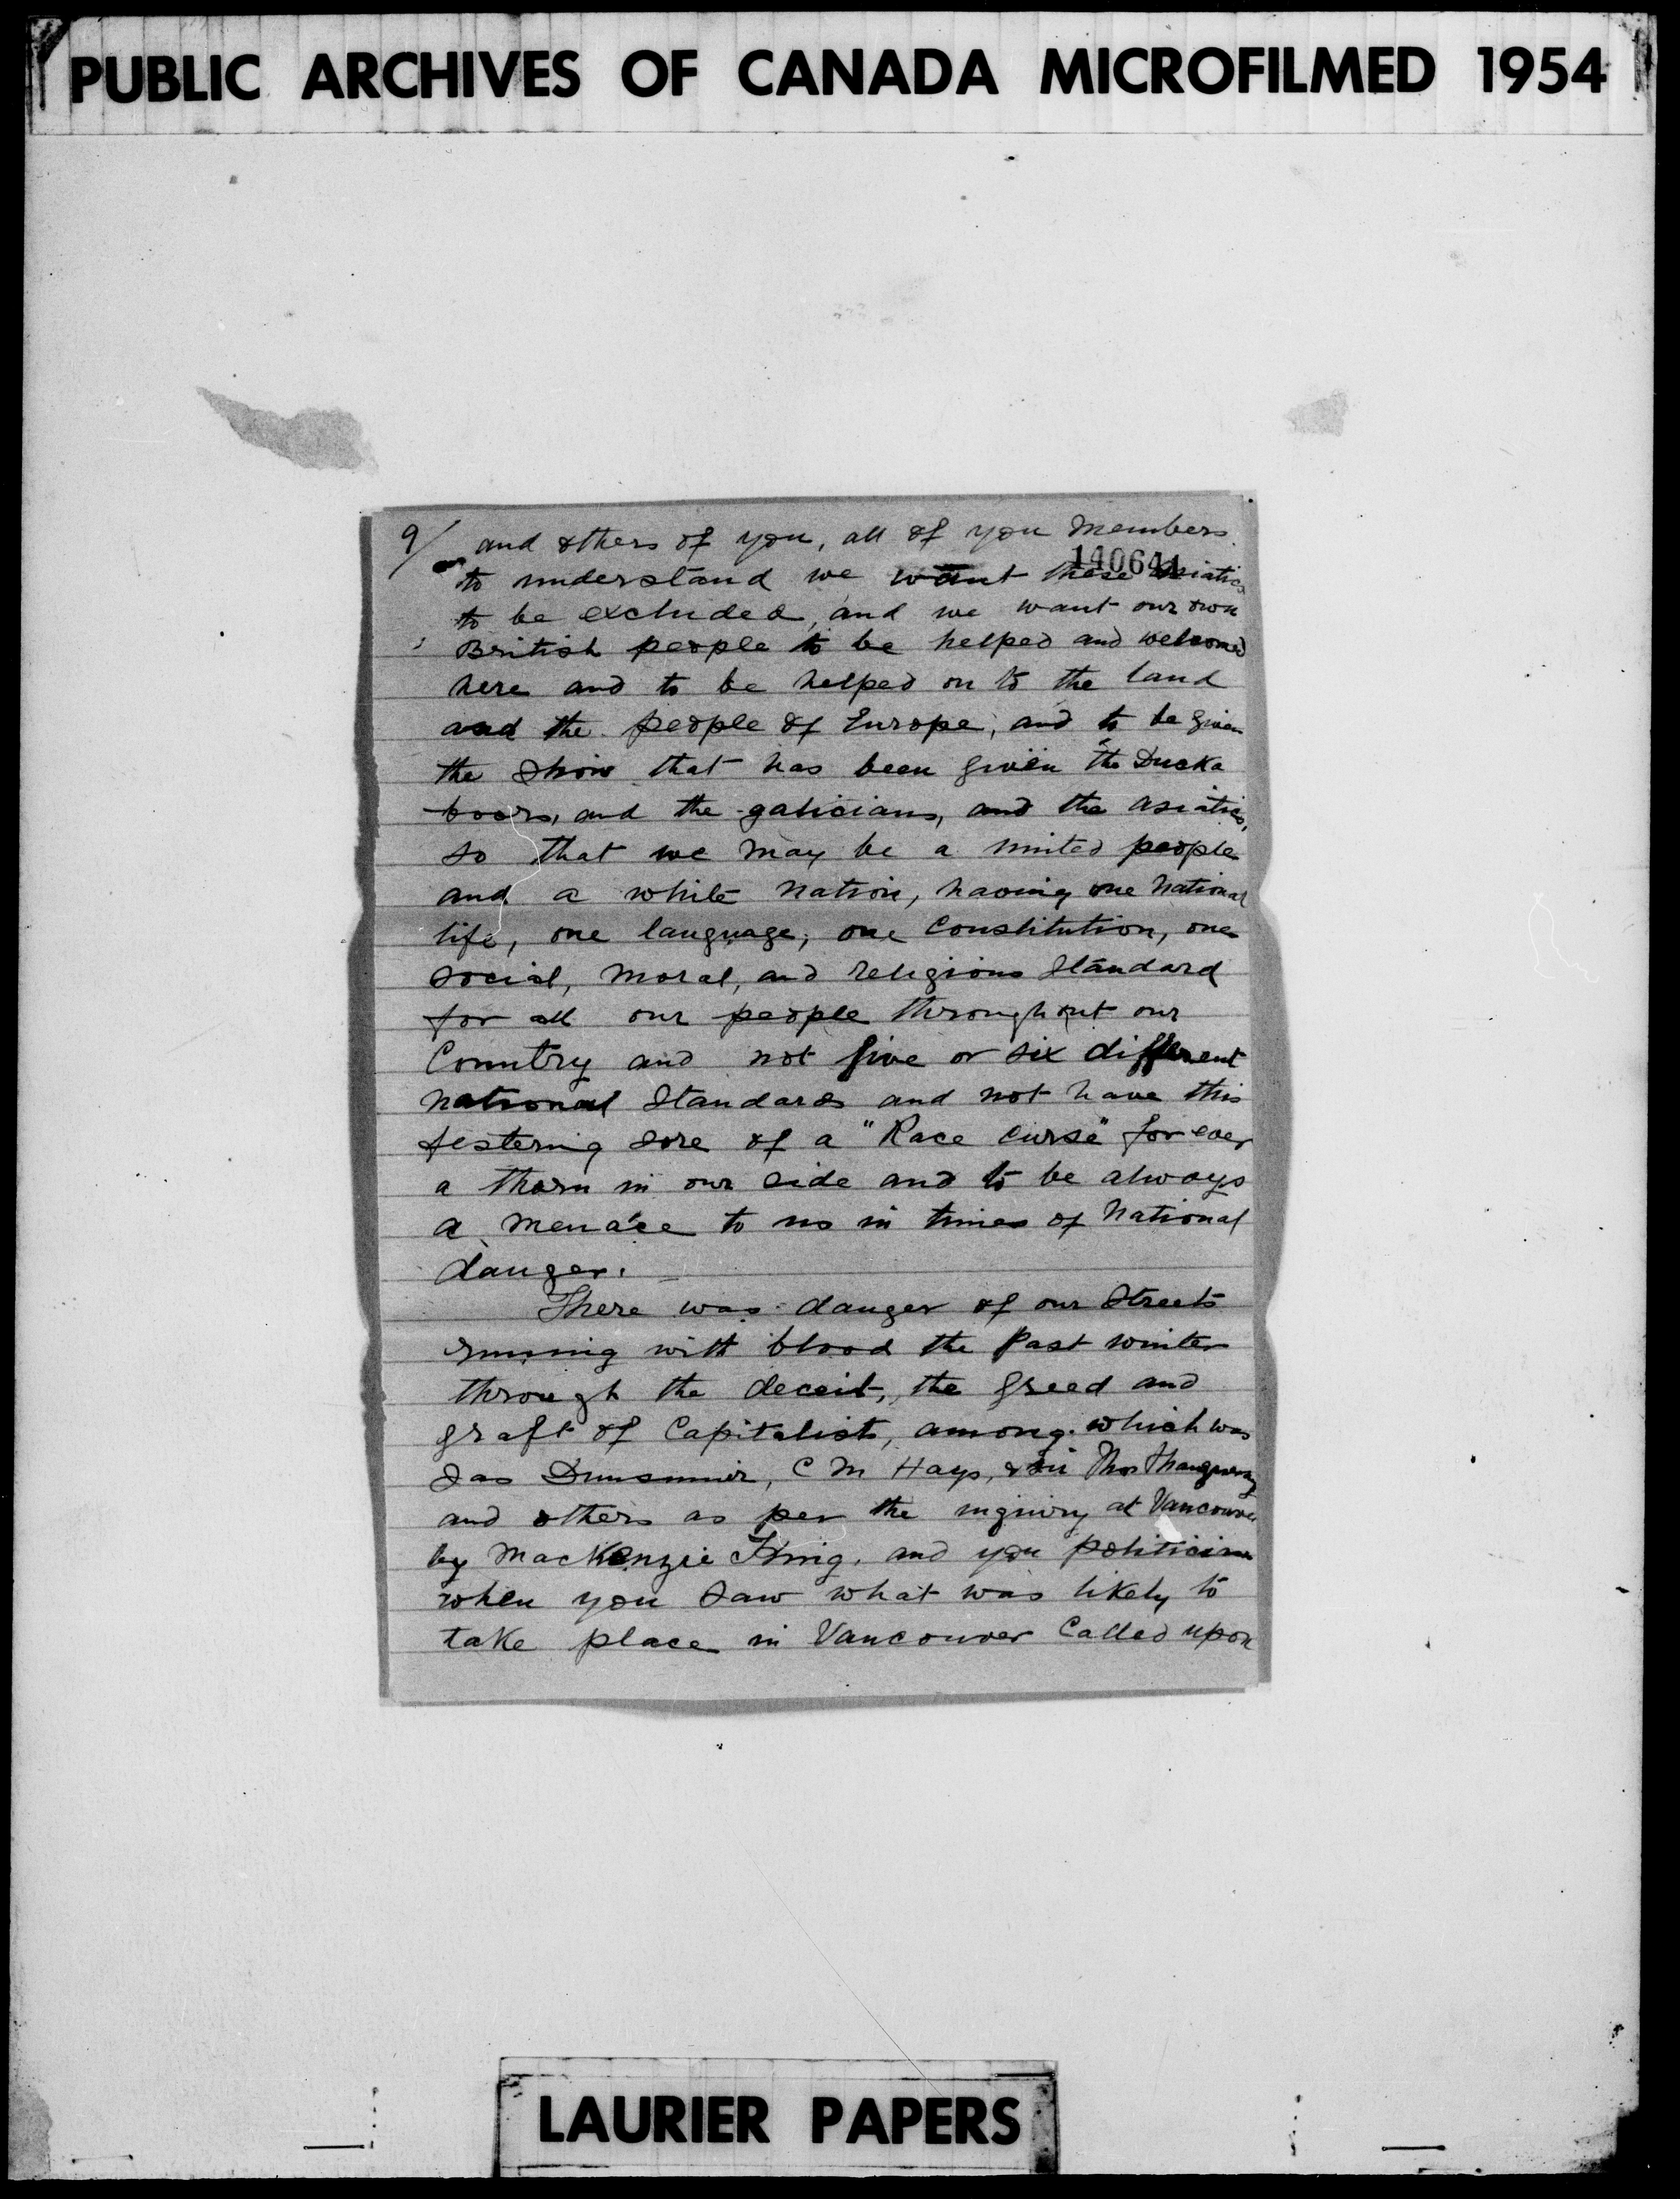 PUBLIC ARCHIVES OF CANADA MICROFILMED 1954
9/ and others of you, all of you Members.
140641
to understand we want these Asiatics
to be excluded, and we want our own
British people to be helped and welcomed
here and to be helped on to the land
and the people of Europe, and to be given
the show that has been given the Ducka
boors, and the galicians, and the asiatics,
so that we may be a united people
and a white nation, having one National
life, one language, one Constitution, one
social, moral, and religious Standard
for all our people throughout our
Country and not five or six different
national Standards and not have this
festering sore of a "Race Curse" for ever
a thorn in our side and to be always
a menace to us in times of National
danger.
There was danger of our Streets
running with blood the past winter
through the deceit, the greed and
graft of Capitalist, among which was
Jas Dunsmuir, C M Hays, & Sir Thos
and others as per the inquiry at Vancouver
by MacKenzie King. and you politicians
when you saw what was likely to
take place in Vancouver Called upon
LAURIER PAPERS